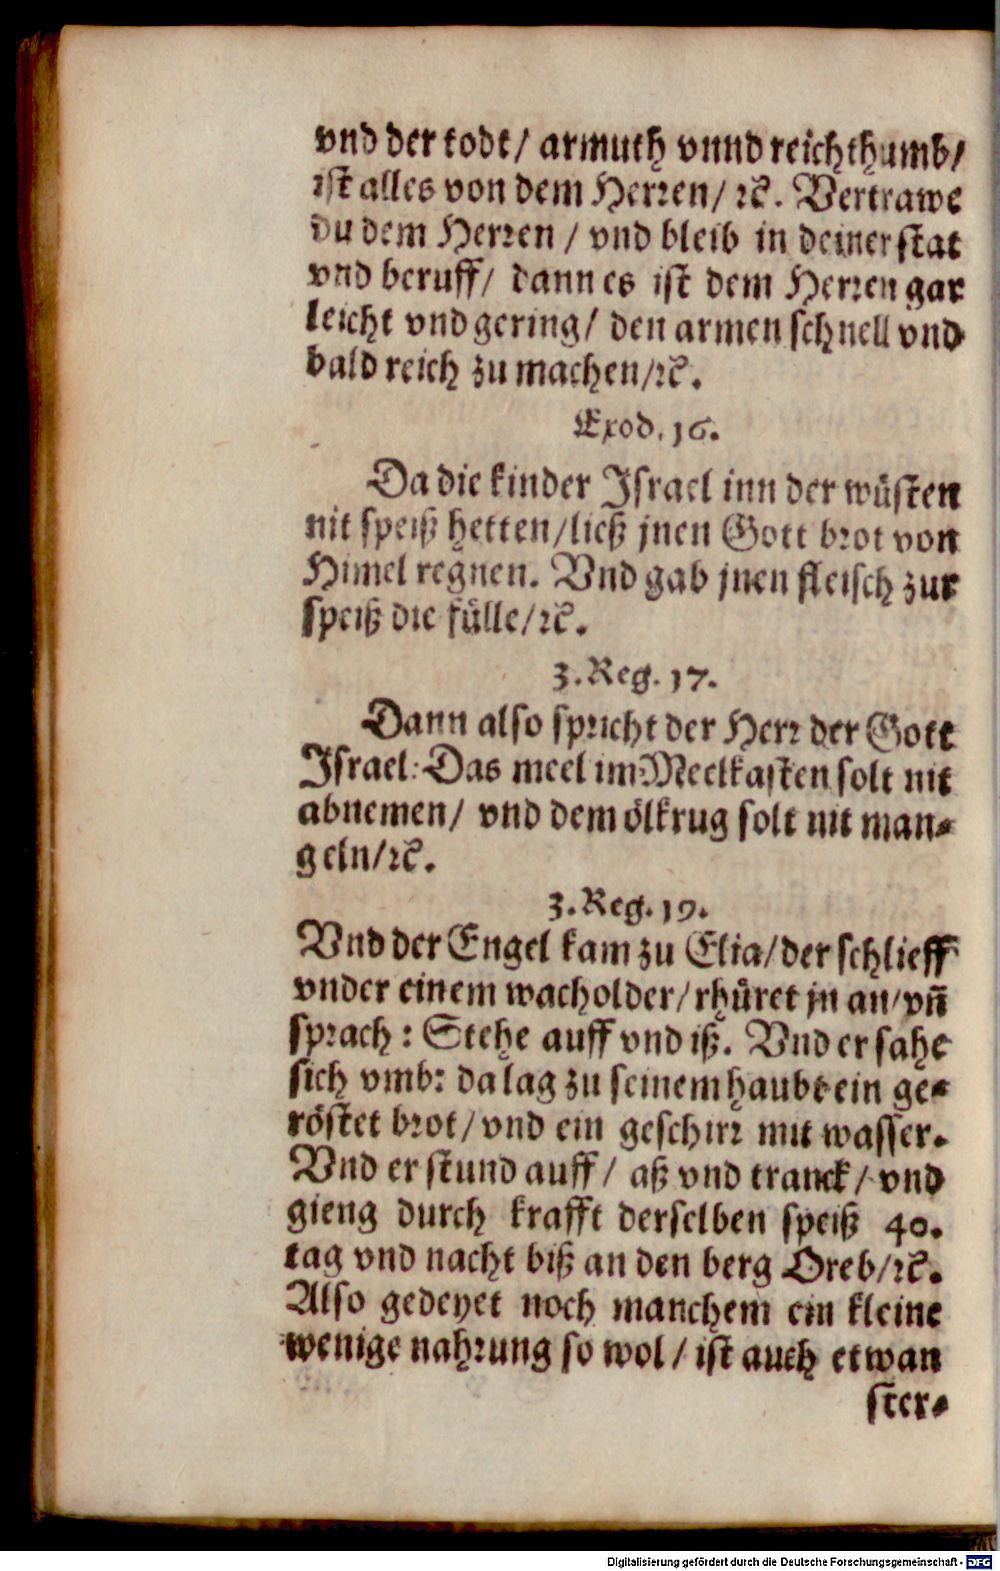 vnd der todt/ armuth vnnd reichthumb/
ist alles von dem Herren/ ꝛc. Vertrawe
du dem Herren / vnd bleib in deiner stat
vnd beruff/ dann es ist dem Herren gar
leicht vnd gering/ den armen schnell vnd
bald reich zu machen/ꝛc.
Exod. 16.
Da die kinder Israel inn der wüsten
nit speiß hetten/ließ jnen Gott brot von
Himel regnen. Vnd gab jnen fleisch zur
speiß die fülle/ꝛc.
3. Reg. 17.
Dann also spricht der Herr der Gott
Israel: Das meel im Meelkasten solt nit
abnemen/ vnd dem ölkrug solt nit man-
geln/ꝛc.
3. Reg. 19.
Vnd der Engel kam zu Elia/der schlieff
vnder einem wacholder/rhüret jn an/vñ
sprach: Stehe auff vnd iß. Vnd er sahe
sich vmb: da lag zu seinem haubt ein ge-
röstet brot/vnd ein geschirr mit wasser.
Vnd er stund auff/ aß vnd tranck/ vnd
gieng durch krafft derselben speiß 40.
tag vnd nacht biß an den berg Oreb/ꝛc.
Also gedeyet noch manchem ein kleine
wenige nahrung so wol/ ist auch etwan
ster-
Digitalisierung gefördert durch die Deutsche Forschungsgemeinschaft - DFG